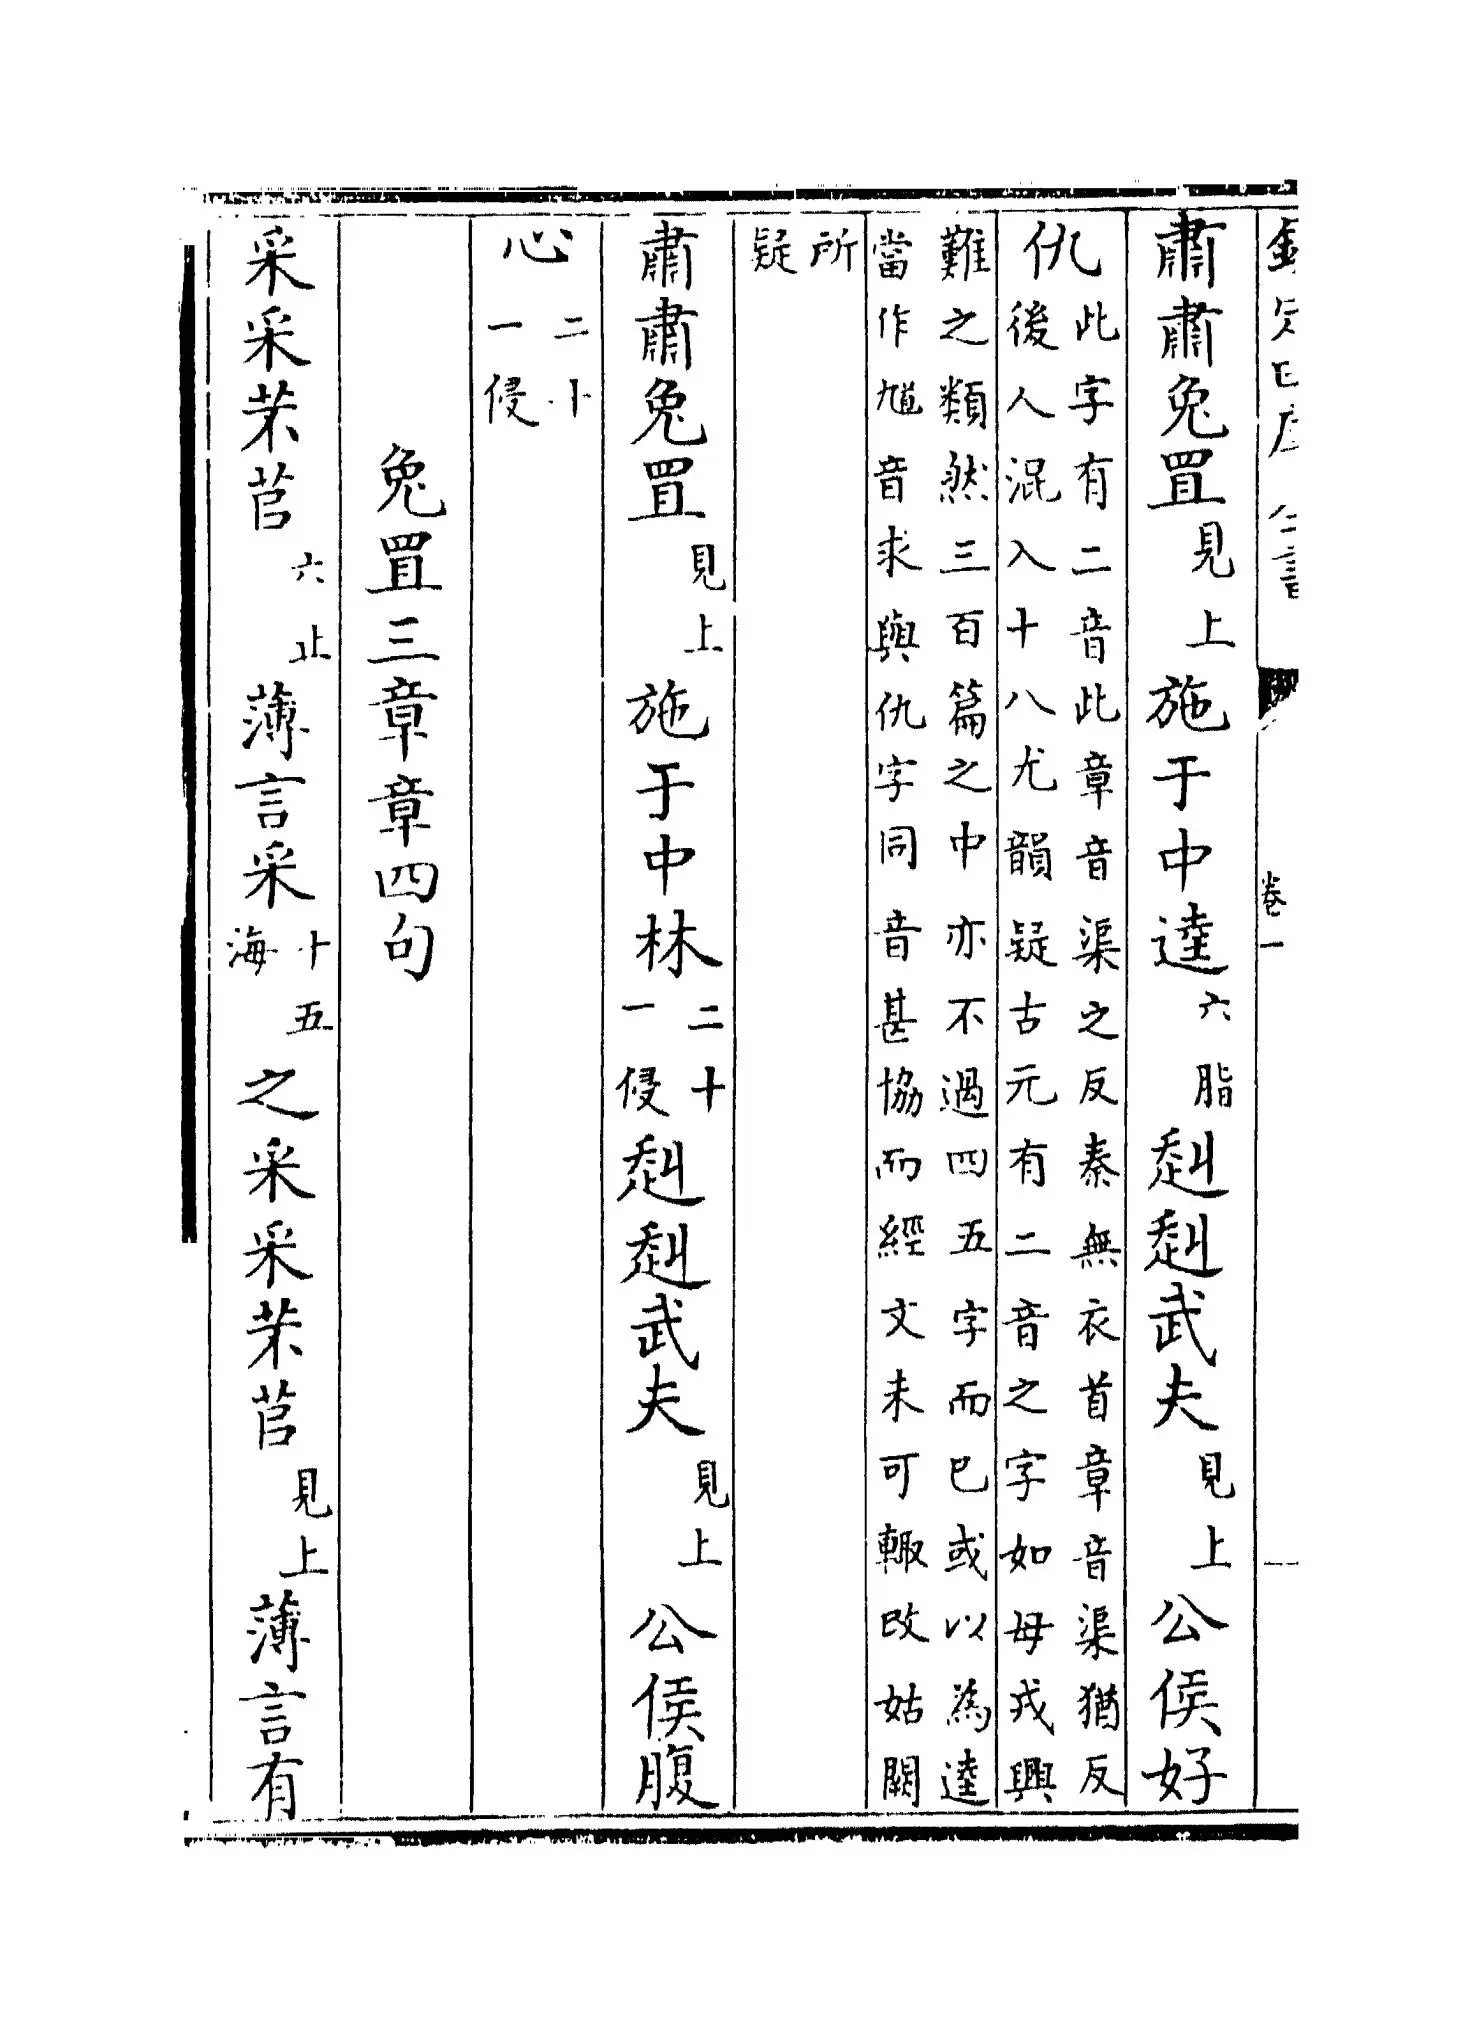 欽定四庫全書 卷一
肅肅兔罝見上施于中逵六脂赳赳武夫見上公侯好
仇此字有二音此章音渠之反秦無衣首章音渠猶反
後人混入十八尤韻疑古元有二音之字如母戎興
難之類然三百篇之中亦不過四五字而已或以為逵
當作馗音求與仇字同音甚協而經文未可輙改姑闕
所
疑
肅肅兔罝見上施于中林二十一侵赳赳武夫見上公侯腹
心二十一侵
兔罝三章章四句
采采芣苢六止薄言采十五海之采采芣苢見上薄言有